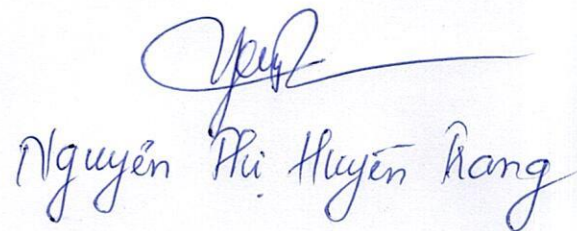 Nguyễn Thị Huyền Trang